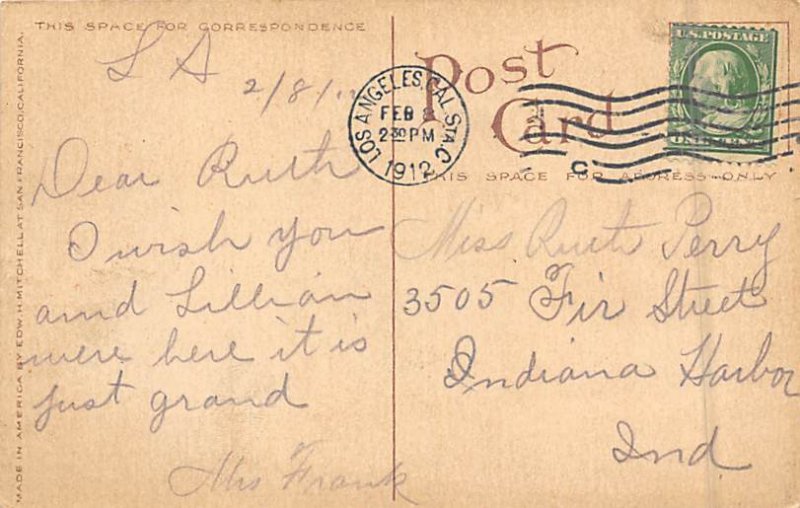 THIS SPACE FOR CORRESPONDENCE
L A
2/8/
Dear Ruth
I wish you
and Lillian
were here it is
just grand
Mrs Frank
MADE IN AMERICA BY EDW. H. MITCHELL AT SAN FRANCISCO, CALIFORNIA.
Post
Card
THIS SPACE FOR ADDRESS ONLY
LOS ANGELES, CAL. STA. C.
FEB 8
2 30 PM
1912
C
U.S. POSTAGE
ONE CENT
Miss Ruth Perry
3505 Fir Street
Indiana Harbor
Ind